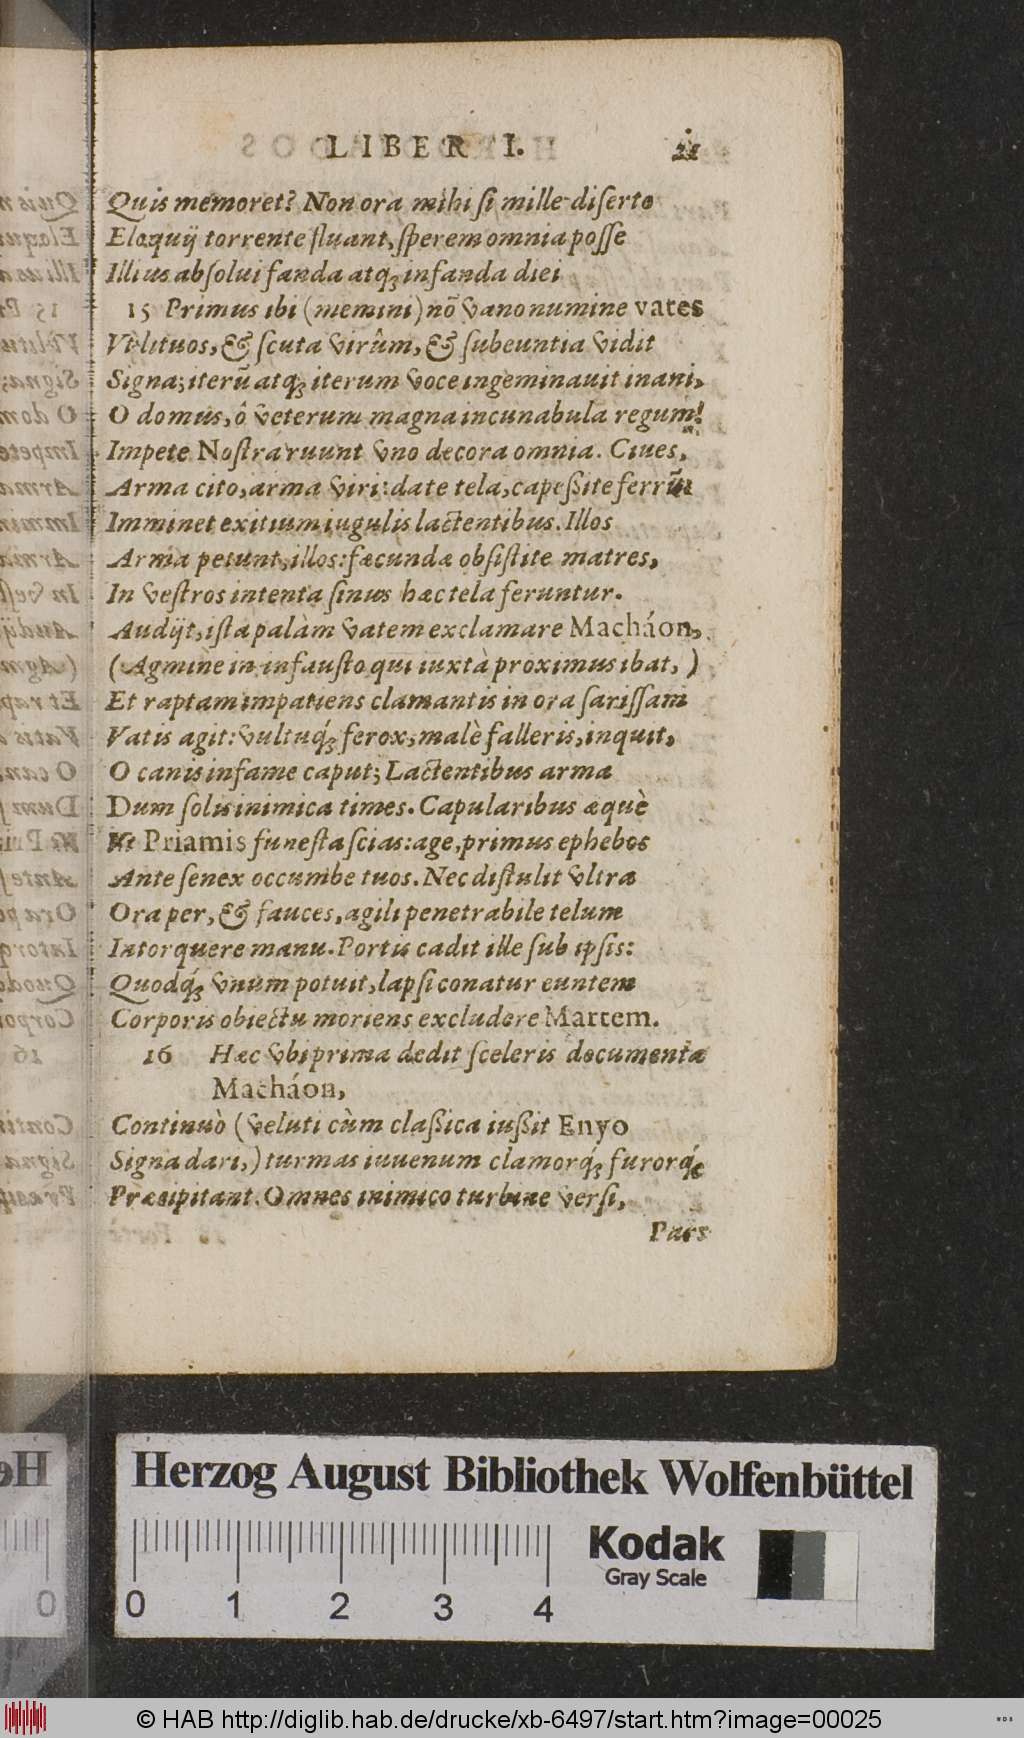 LIBER I.
Quis memoret? Non ora mihi si mille diserto
Eloquij torrente fluant, sperem omnia posse
Illius absolui fanda atq; infanda diei
15 Primus ibi (memini) nõ vano numine vates
Vt lituos, & scuta virûm, & subeuntia vidit
Signa; iterũ atq; iterum voce ingeminauit inani,
O domus, ô veterum magna incunabula regum!
Impete Nostra ruunt vno decora omnia. Ciues,
Arma cito, arma viri: date tela, capeßite ferrũ
Imminet exitium iugulis lactentibus. Illos
Arma petunt, illos: fæcundæ obsistite matres,
In vestros intenta sinus hæc tela feruntur.
Audijt, ista palàm vatem exclamare Macháon,
(Agmine in infausto qui iuxtà proximus ibat,)
Et raptam impatiens clamantis in ora sarissam
Vatis agit: vultuq́; ferox, malè falleris, inquit,
O canis infame caput; Lactentibus arma
Dum solis inimica times. Capularibus æquè
Priamis funesta scias: age, primus ephebos
Ante senex occumbe tuos. Nec distulit vltra
Ora per, & fauces, agili penetrabile telum
Intorquere manu. Portis cadit ille sub ipsis:
Quodq́; vnum potuit, lapsi conatur euntem
Corporis obiectu moriens excludere Martem.
16 Hæc vbi prima dedit sceleris documenta
Macháon,
Continuò (veluti cùm claßica iußit Enyo
Signa dari,) turmas iuuenum clamorq́; furorq́;
Præcipitant. Omnes inimico turbine versi,
Pars
Herzog August Bibliothek Wolfenbüttel
0 1 2 3 4
Kodak
Gray Scale
© HAB http://diglib.hab.de/drucke/xb-6497/start.htm?image=00025